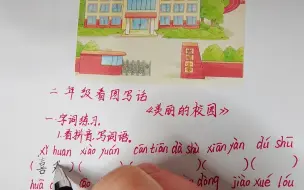 二年级看图写话
《美丽的校园》
一、字词练习
1.看拼音,写词语。
xǐ huan xiào yuán cān tiān dà shù xiān yàn dú shū
(喜 )( )( )( )( )
huā dòng jiào xué lóu